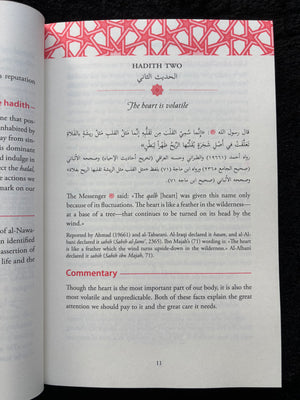 reputation
e hadith
ne that pos-
inhabited by
us from sin-
is dominant
d indulge in
ct the halal,
e actions we
mark on our
of al-Nawa-
n identified
assertion of
life and the
HADITH TWO
الحديث الثاني
The heart is volatile
قال رسول الله ﷺ: «إنما سمي القلب من تقلبه إنما مثل القلب مثل ريشة بالفلاة
تعلقت في أصل شجرة يقلبها الريح ظهرًا لبطن»
رواه أحمد (١٩٦٦١) والطبراني وحسنه العراقي (تخريج أحاديث الإحياء) وصححه الألباني
(صحيح الجامع ٢٣٦٥) ورواه ابن ماجه (٧١) بلفظ مثل القلب مثل الريشة تقلبها الرياح بفلاة
(صحيح ابن ماجه ٧١) وصححه الألباني
The Messenger ﷺ said: «The qalb [heart] was given this name only
because of its fluctuations. The heart is like a feather in the wilderness—
at the base of a tree—that continues to be turned on its head by the
wind.»
Reported by Ahmad (19661) and al-Tabarani. Al-Iraqi declared it hasan, and al-
Albani declared it sahih (Sahih al-Jame', 2365). Ibn Majah's (71) wording is: «The heart
is like a feather which the wind turns upside-down in the wilderness.» Al-Albani
declared it sahih (Sahih ibn Majah, 71).
Commentary
Though the heart is the most important part of our body, it is also the
most volatile and unpredictable. Both of these facts explain the great
attention we should pay to it and the great care it needs.
13